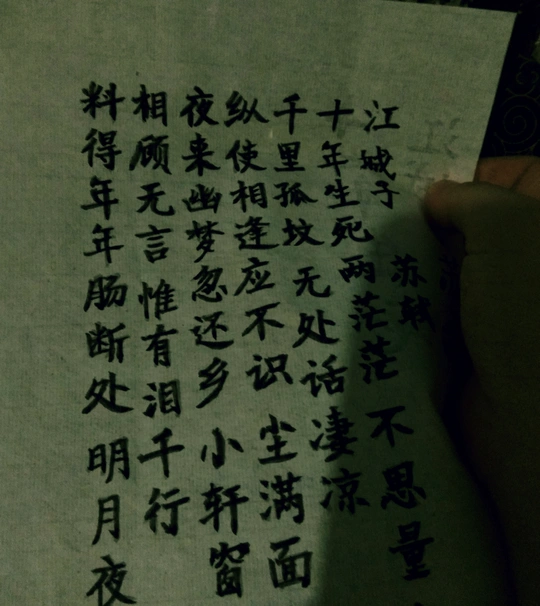 江城子
苏轼
十年生死两茫茫 不思量
千里孤坟 无处话凄凉
纵使相逢应不识 尘满面
夜来幽梦忽还乡 小轩窗
相顾无言 惟有泪千行
料得年年肠断处 明月夜